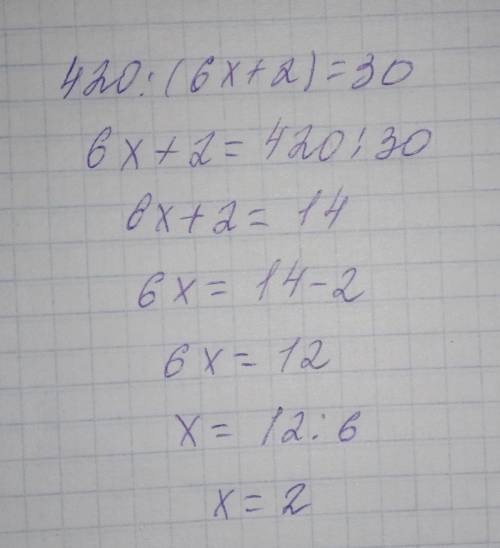 420:(6x+2)=30
6x+2=420:30
6x+2=14
6x=14-2
6x=12
x=12:6
x=2